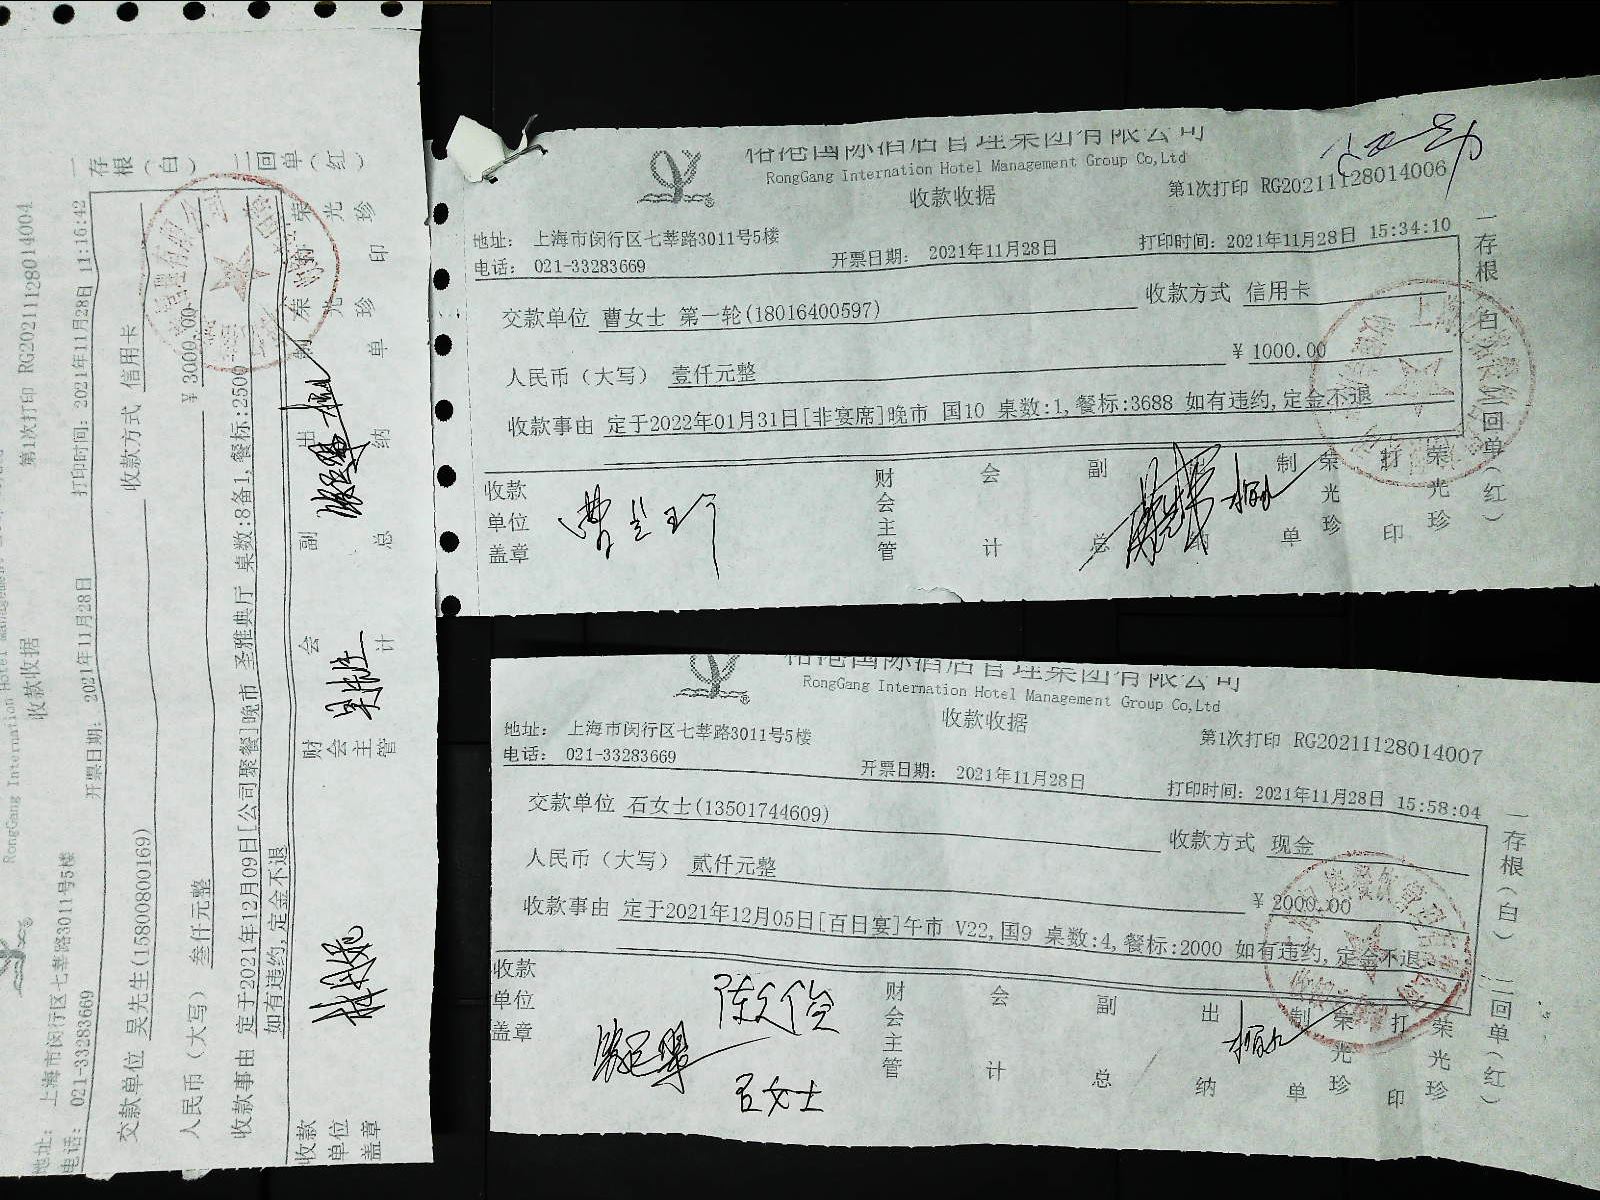 RongGang Internation Hotel Management
收款收据
第1次打印 RG20211128014004
地址： 上海市闵行区七莘路3011号5楼
电话： 021-33283669
开票日期： 2021年11月28日
打印时间：2021年11月28日 11:16:42
交款单位 吴先生(15800800169)
收款方式 信用卡
人民币（大写） 叁仟元整
¥ 3000.00
收款事由 定于2021年12月09日[公司聚餐]晚市 圣雅典厅 桌数:8备1,餐标:2500
如有违约,定金不退
收款单位盖章
财会主管
会计
副总
出纳
制单
荣光珍
打印
荣光珍
一存根（白） 二回单（红）
裕港国际酒店管理集团有限公司
RongGang Internation Hotel Management Group Co,Ltd
收款收据
第1次打印 RG20211128014006
地址： 上海市闵行区七莘路3011号5楼
电话： 021-33283669
开票日期： 2021年11月28日
打印时间：2021年11月28日 15:34:10
交款单位 曹女士 第一轮(18016400597)
收款方式 信用卡
人民币（大写） 壹仟元整
¥ 1000.00
收款事由 定于2022年01月31日[非宴席]晚市 国10 桌数:1,餐标:3688 如有违约,定金不退
收款单位盖章
财会主管
会计
副总
出纳
制单
荣光珍
打印
荣光珍
一存根（白） 二回单（红）
裕港国际酒店管理集团有限公司
RongGang Internation Hotel Management Group Co,Ltd
收款收据
第1次打印 RG20211128014007
地址： 上海市闵行区七莘路3011号5楼
电话： 021-33283669
开票日期： 2021年11月28日
打印时间：2021年11月28日 15:58:04
交款单位 石女士(13501744609)
收款方式 现金
人民币（大写） 贰仟元整
¥ 2000.00
收款事由 定于2021年12月05日[百日宴]午市 V22,国9 桌数:4,餐标:2000 如有违约,定金不退
收款单位盖章
石女士
财会主管
会计
副总
出纳
制单
荣光珍
打印
荣光珍
一存根（白） 二回单（红）